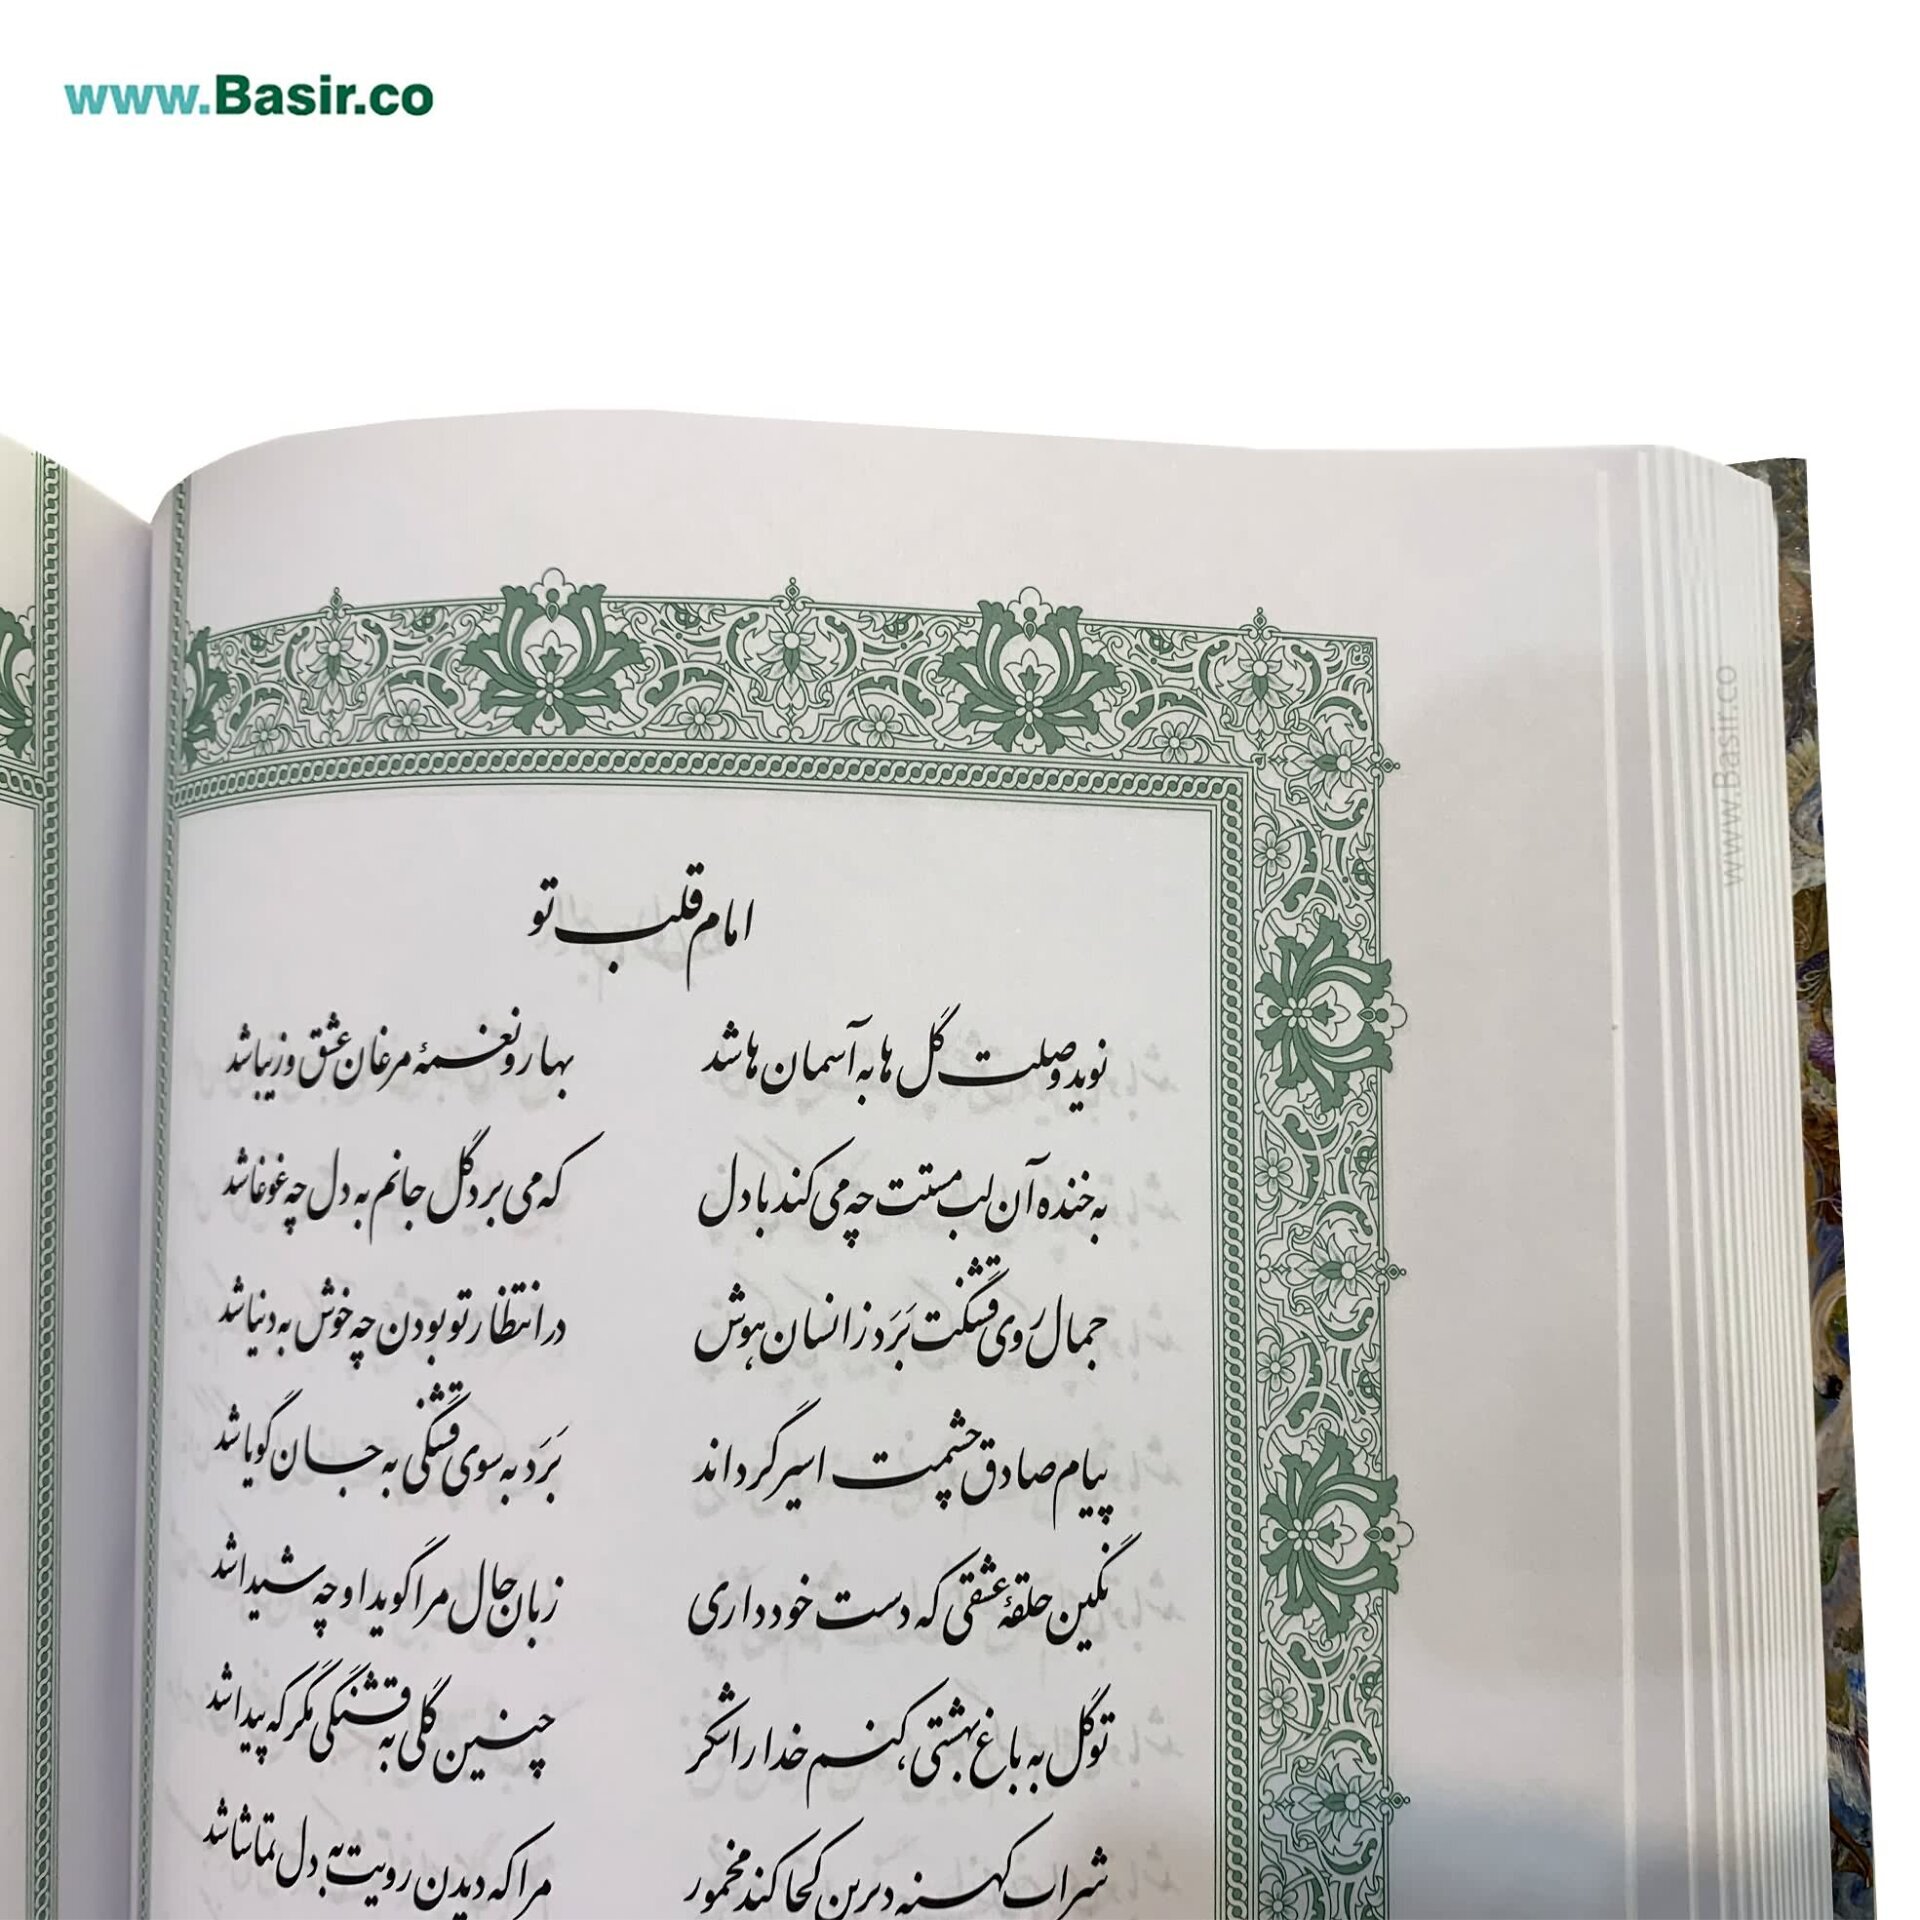 www.Basir.co
امام قلب تو
نوید وصلت گل ها به آسمان ها شد بهار و نغمهٔ مرغان عشق و زیبا شد
به خنده آن لب مستت چه می کند با دل که می برد گل جانم به دل چه غوغا شد
جمال روی قشنگت بَرَد ز انسان هوش در انتظار تو بودن چه خوش به دنیا شد
پیام صادق چشمت اسیر گرداند بَرَد به سوی قشنگی به جان گویا شد
نگین حلقهٔ عشقی که دست خود داری زبان حال مرا گوید او چه شیدا شد
تو گل به باغ بهشتی، کنم خدا را شکر چنین گلی به قشنگی مگر که پیدا شد
شراب کهنه دیرین کجا کند مخمور مرا که دیدن رویت به دل تماشا شد
www.Basir.co